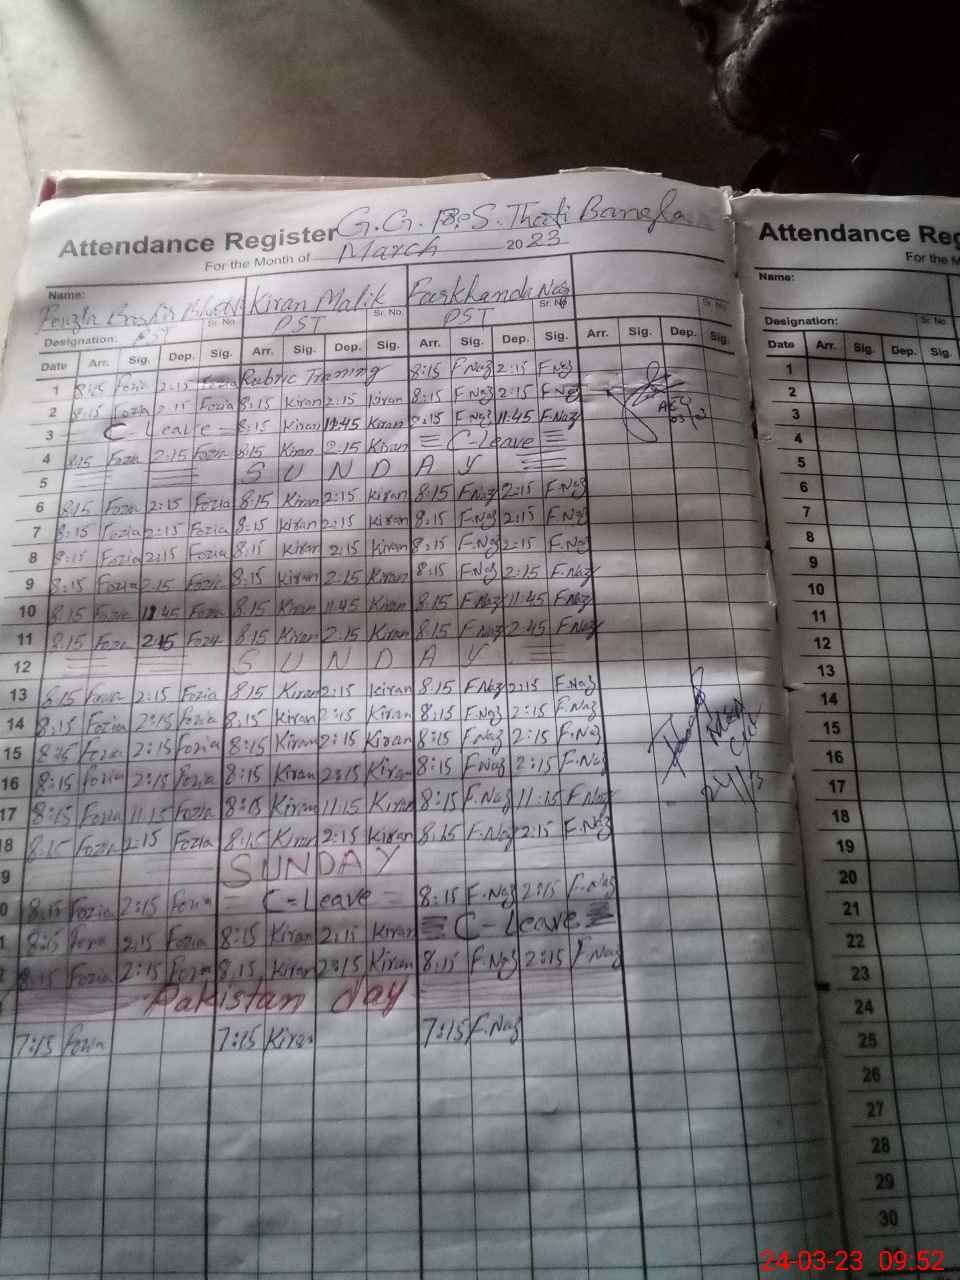 Attendance Register G.G.P.S. Thati Bangla
For the Month of March 2023
Name: Kiran Malik Farkhanda Naz
Sr. No. Sr. No. Sr. No. Sr. No.
Designation: PST PST PST
Date Arr. Sig. Dep. Sig. Arr. Sig. Dep. Sig. Arr. Sig. Dep. Sig. Arr. Sig. Dep. Sig.
1 8:15 Fozia 2:15 Fozia Rubric Training 8:15 F.Naz 2:15 F.Naz
2 8:15 Fozia 2:15 Fozia 8:15 Kiran 2:15 Kiran 8:15 F.Naz 2:15 F.Naz
3 C Leave 8:15 Kiran 11:45 Kiran 8:15 F.Naz 11:45 F.Naz
4 8:15 Fozia 2:15 Fozia 8:15 Kiran 2:15 Kiran C-Leave
5 SUNDAY
6 8:15 Fozia 2:15 Fozia 8:15 Kiran 2:15 Kiran 8:15 F.Naz 2:15 F.Naz
7 8:15 Fozia 2:15 Fozia 8:15 Kiran 2:15 Kiran 8:15 F.Naz 2:15 F.Naz
8 8:15 Fozia 2:15 Fozia 8:15 Kiran 2:15 Kiran 8:15 F.Naz 2:15 F.Naz
9 8:15 Fozia 2:15 Fozia 8:15 Kiran 2:15 Kiran 8:15 F.Naz 2:15 F.Naz
10 8:15 Fozia 11:45 Fozia 8:15 Kiran 11:45 Kiran 8:15 F.Naz 11:45 F.Naz
11 8:15 Fozia 2:15 Fozia 8:15 Kiran 2:15 Kiran 8:15 F.Naz 2:45 F.Naz
12 SUNDAY
13 8:15 Fozia 2:15 Fozia 8:15 Kiran 2:15 Kiran 8:15 F.Naz 2:15 F.Naz
14 8:15 Fozia 2:15 Fozia 8:15 Kiran 2:15 Kiran 8:15 F.Naz 2:15 F.Naz
15 8:15 Fozia 2:15 Fozia 8:15 Kiran 2:15 Kiran 8:15 F.Naz 2:15 F.Naz
16 8:15 Fozia 2:15 Fozia 8:15 Kiran 2:15 Kiran 8:15 F.Naz 2:15 F.Naz
17 8:15 Fozia 11:15 Fozia 8:15 Kiran 11:15 Kiran 8:15 F.Naz 11:15 F.Naz
8 8:15 Fozia 2:15 Fozia 8:15 Kiran 2:15 Kiran 8:15 F.Naz 2:15 F.Naz
9 SUNDAY
0 8:15 Fozia 2:15 Fozia C-Leave 8:15 F.Naz 2:15 F.Naz
1 8:15 Fozia 2:15 Fozia 8:15 Kiran 2:15 Kiran C-Leave
8:15 Fozia 2:15 Fozia 8:15 Kiran 2:15 Kiran 8:15 F.Naz 2:15 F.Naz
Pakistan day
7:15 Fozia 7:15 Kiran 7:15 F.Naz
Attendance Reg
For the M
Name:
Designation: Sr. No.
Date Arr. Sig. Dep. Sig.
1
2
3
4
5
6
7
8
9
10
11
12
13
14
15
16
17
18
19
20
21
22
23
24
25
26
27
28
29
30
24-03-23 09:52